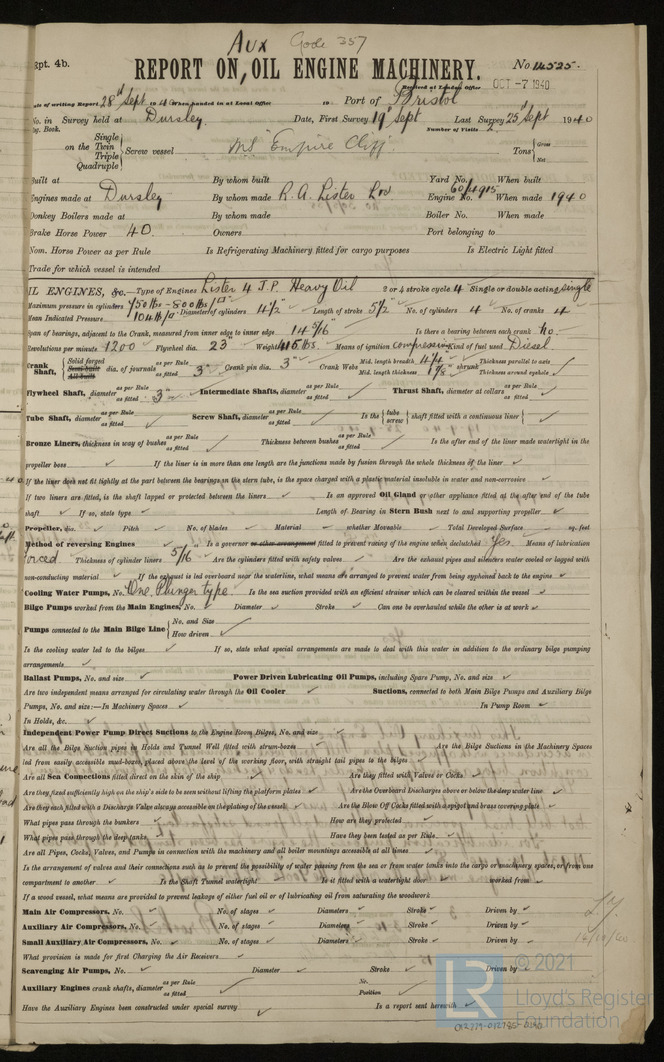 Aux Gode 357
Rpt. 4b. REPORT ON OIL ENGINE MACHINERY. No. 14525.
Received at London Office OCT -7 1940
Date of writing Report 28th Sept 19 40 When handed in at Local Office 19 Port of Bristol
No. in Survey held at Dursley. Date, First Survey 19th Sept Last Survey 25th Sept 1940
Reg. Book. Number of Visits 2
Single
on the Twin
Triple
Quadruple
Screw vessel MS "Empire Cliff" Tons Gross Net
Built at By whom built Yard No. When built
Engines made at Dursley By whom made R.A. Lister Ltd Engine No. 60/4915 When made 1940
Donkey Boilers made at By whom made Boiler No. When made
Brake Horse Power 40. Owners Port belonging to
Nom. Horse Power as per Rule Is Refrigerating Machinery fitted for cargo purposes Is Electric Light fitted
Trade for which vessel is intended
OIL ENGINES, &c.—Type of Engines Lister 4 J.P. Heavy Oil 2 or 4 stroke cycle 4 Single or double acting single
Maximum pressure in cylinders 750 lbs - 800 lbs/□" Diameter of cylinders 4½" Length of stroke 5½" No. of cylinders 4 No. of cranks 4
Mean Indicated Pressure 104 lb/□"
Span of bearings, adjacent to the Crank, measured from inner edge to inner edge 14 5/16" Is there a bearing between each crank No.
Revolutions per minute 1200 Flywheel dia. 23" Weight 415 lbs. Means of ignition Compression Kind of fuel used Diesel
Crank Shaft, Solid forged Semi built All built dia. of journals as per Rule as fitted 3" Crank pin dia. 3" Crank Webs Mid. length breadth 4¼" Mid. length thickness 1⅛" shrunk Thickness parallel to axis Thickness around eyehole
Flywheel Shaft, diameter as per Rule as fitted 3" Intermediate Shafts, diameter as per Rule as fitted Thrust Shaft, diameter at collars as per Rule as fitted
Tube Shaft, diameter as per Rule as fitted Screw Shaft, diameter as per Rule as fitted Is the tube screw shaft fitted with a continuous liner
Bronze Liners, thickness in way of bushes as per Rule as fitted Thickness between bushes as per Rule as fitted Is the after end of the liner made watertight in the
propeller boss If the liner is in more than one length are the junctions made by fusion through the whole thickness of the liner
If the liner does not fit tightly at the part between the bearings in the stern tube, is the space charged with a plastic material insoluble in water and non-corrosive
If two liners are fitted, is the shaft lapped or protected between the liners Is an approved Oil Gland or other appliance fitted at the after end of the tube
shaft If so, state type Length of Bearing in Stern Bush next to and supporting propeller
Propeller, dia. Pitch No. of blades Material whether Moveable Total Developed Surface sq. feet
Method of reversing Engines Is a governor or other arrangement fitted to prevent racing of the engine when declutched Yes. Means of lubrication
forced Thickness of cylinder liners 5/16 Are the cylinders fitted with safety valves Are the exhaust pipes and silencers water cooled or lagged with
non-conducting material If the exhaust is led overboard near the waterline, what means are arranged to prevent water from being syphoned back to the engine
Cooling Water Pumps, No. One. Plunger type Is the sea suction provided with an efficient strainer which can be cleared within the vessel
Bilge Pumps worked from the Main Engines, No. Diameter Stroke Can one be overhauled while the other is at work
Pumps connected to the Main Bilge Line No. and Size How driven
Is the cooling water led to the bilges If so, state what special arrangements are made to deal with this water in addition to the ordinary bilge pumping
arrangements
Ballast Pumps, No. and size Power Driven Lubricating Oil Pumps, including Spare Pump, No. and size
Are two independent means arranged for circulating water through the Oil Cooler Suctions, connected to both Main Bilge Pumps and Auxiliary Bilge
Pumps, No. and size:—In Machinery Spaces In Pump Room
In Holds, &c.
Independent Power Pump Direct Suctions to the Engine Room Bilges, No. and size
Are all the Bilge Suction pipes in Holds and Tunnel Well fitted with strum-boxes Are the Bilge Suctions in the Machinery Spaces
led from easily accessible mud-boxes, placed above the level of the working floor, with straight tail pipes to the bilges
Are all Sea Connections fitted direct on the skin of the ship Are they fitted with Valves or Cocks
Are they fixed sufficiently high on the ship's side to be seen without lifting the platform plates Are the Overboard Discharges above or below the deep water line
Are they each fitted with a Discharge Valve always accessible on the plating of the vessel Are the Blow Off Cocks fitted with a spigot and brass covering plate
What pipes pass through the bunkers How are they protected
What pipes pass through the deep tanks Have they been tested as per Rule
Are all Pipes, Cocks, Valves, and Pumps in connection with the machinery and all boiler mountings accessible at all times
Is the arrangement of valves and their connections such as to prevent the possibility of water passing from the sea or from water tanks into the cargo or machinery spaces, or from one
compartment to another Is the Shaft Tunnel watertight Is it fitted with a watertight door worked from
If a wood vessel, what means are provided to prevent leakage of either fuel oil or of lubricating oil from saturating the woodwork
Main Air Compressors, No. No. of stages Diameters Stroke Driven by
Auxiliary Air Compressors, No. No. of stages Diameters Stroke Driven by
Small Auxiliary Air Compressors, No. No. of stages Diameters Stroke Driven by
What provision is made for first Charging the Air Receivers
Scavenging Air Pumps, No. Diameter Stroke Driven by
Auxiliary Engines crank shafts, diameter as per Rule as fitted No. Position
Have the Auxiliary Engines been constructed under special survey Is a report sent herewith
LR © 2021
Lloyd's Register
Foundation